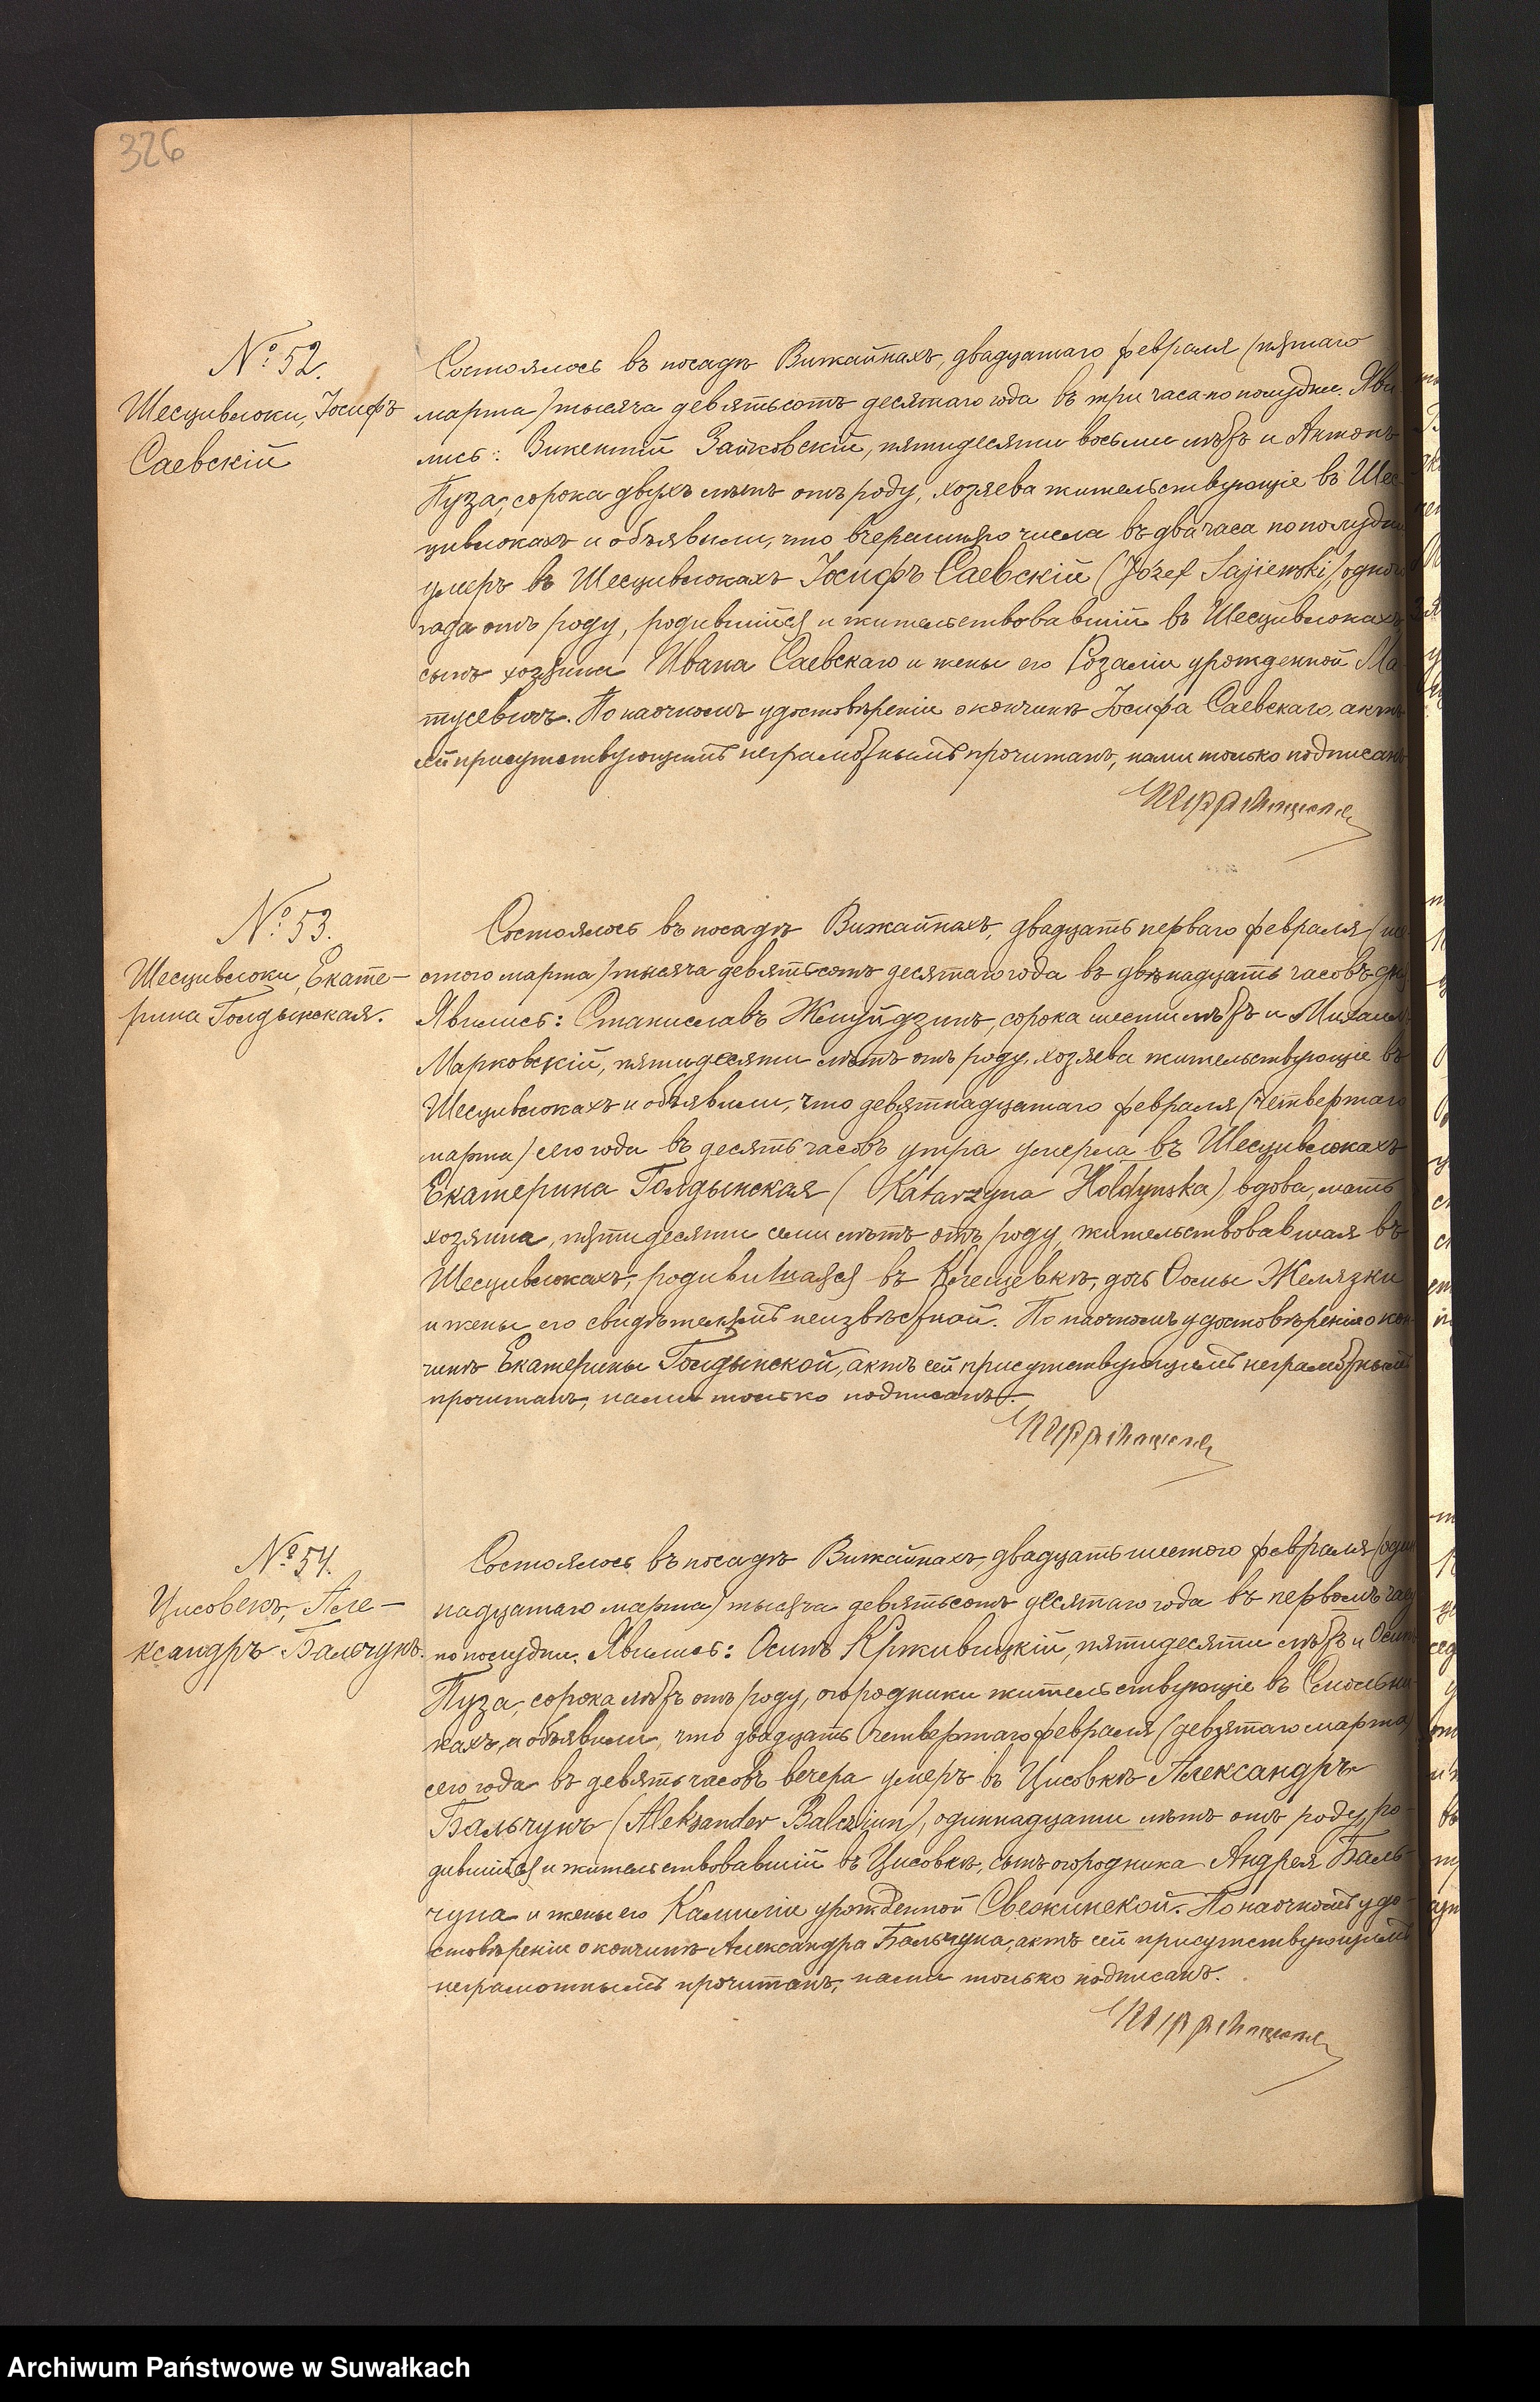 326
№ 52.
Шесцивлоки, Іосифъ
Саевскій
Состоялось въ посадѣ Вижайнахъ, двадцатаго февраля (пятаго
марта) тысяча девятьсотъ десятаго года въ три часа по полудни. Яви
лись: Викентій Зайковскій, пятидесяти восьми лѣтъ и Антонъ
Пуза, сорока двухъ лѣтъ отъ роду, хозяева жительствующіе въ Шес
цивлокахъ и объявили, что вчерашняго числа въ два часа по полудни
умеръ въ Шесцивлокахъ Іосифъ Саевскій (Józef Sajiewski), одного
года отъ роду, родившійся и жительствовавшій въ Шесцивлокахъ
сынъ хозяина Ивана Саевскаго и жены его Розаліи урожденной Ма
тусевичъ. По наочномъ удостовѣреніи о кончинѣ Іосифа Саевскаго, актъ
сей присутствующимъ неграмотнымъ прочитанъ, нами только подписанъ
№ 53.
Шесцивлоки, Екате-
рина Голдынская.
Состоялось въ посадѣ Вижайнахъ, двадцать перваго февраля (ше
стого марта) тысяча девятьсотъ десятаго года въ двѣнадцать часовъ дня
Явились: Станиславъ Жмуйдзинъ, сорока шести лѣтъ и Михаилъ
Марковскій, пятидесяти лѣтъ отъ роду, хозяева жительствующіе въ
Шесцивлокахъ и объявили, что девятнадцатаго февраля (четвертаго
марта) сего года въ десять часовъ утра умерла въ Шесцивлокахъ
Екатерина Голдынская (Katarzyna Hołdyńska), вдова, мать
хозяина, пятидесяти семи лѣтъ отъ роду, жительствовавшая въ
Шесцивлокахъ, родившаяся въ Клещевкѣ, дочь Ѳомы Желязки
и жены его свидѣтелямъ неизвѣстной. По наочномъ удостовѣреніи о кон
чинѣ Екатерины Голдынской, актъ сей присутствующимъ неграмотнымъ
прочитанъ, нами только подписанъ.
№ 54.
Цисовекъ, Але-
ксандръ Бальчунъ.
Состоялось въ посадѣ Вижайнахъ, двадцать шестого февраля (один
надцатаго марта) тысяча девятьсотъ десятаго года въ первомъ часу
по полудни. Явились: Осипъ Крживицкій, пятидесяти лѣтъ и Осипъ
Пуза, сорока лѣтъ отъ роду, огородники жительствующіе въ Смольни
кахъ, и объявили, что двадцать четвертаго февраля (девятаго марта)
сего года въ девять часовъ вечера умеръ въ Цисовкѣ Александръ
Бальчунъ (Aleksander Balcziun), одиннадцати лѣтъ отъ роду, ро-
дившійся и жительствовавшій въ Цисовкѣ, сынъ огородника Андрея Баль-
чуна и жены его Камиліи урожденной . По наочномъ удо-
стовѣреніи о кончинѣ Александра Бальчуна, актъ сей присутствующимъ
неграмотнымъ прочитанъ, нами только подписанъ.
Archiwum Państwowe w Suwałkach